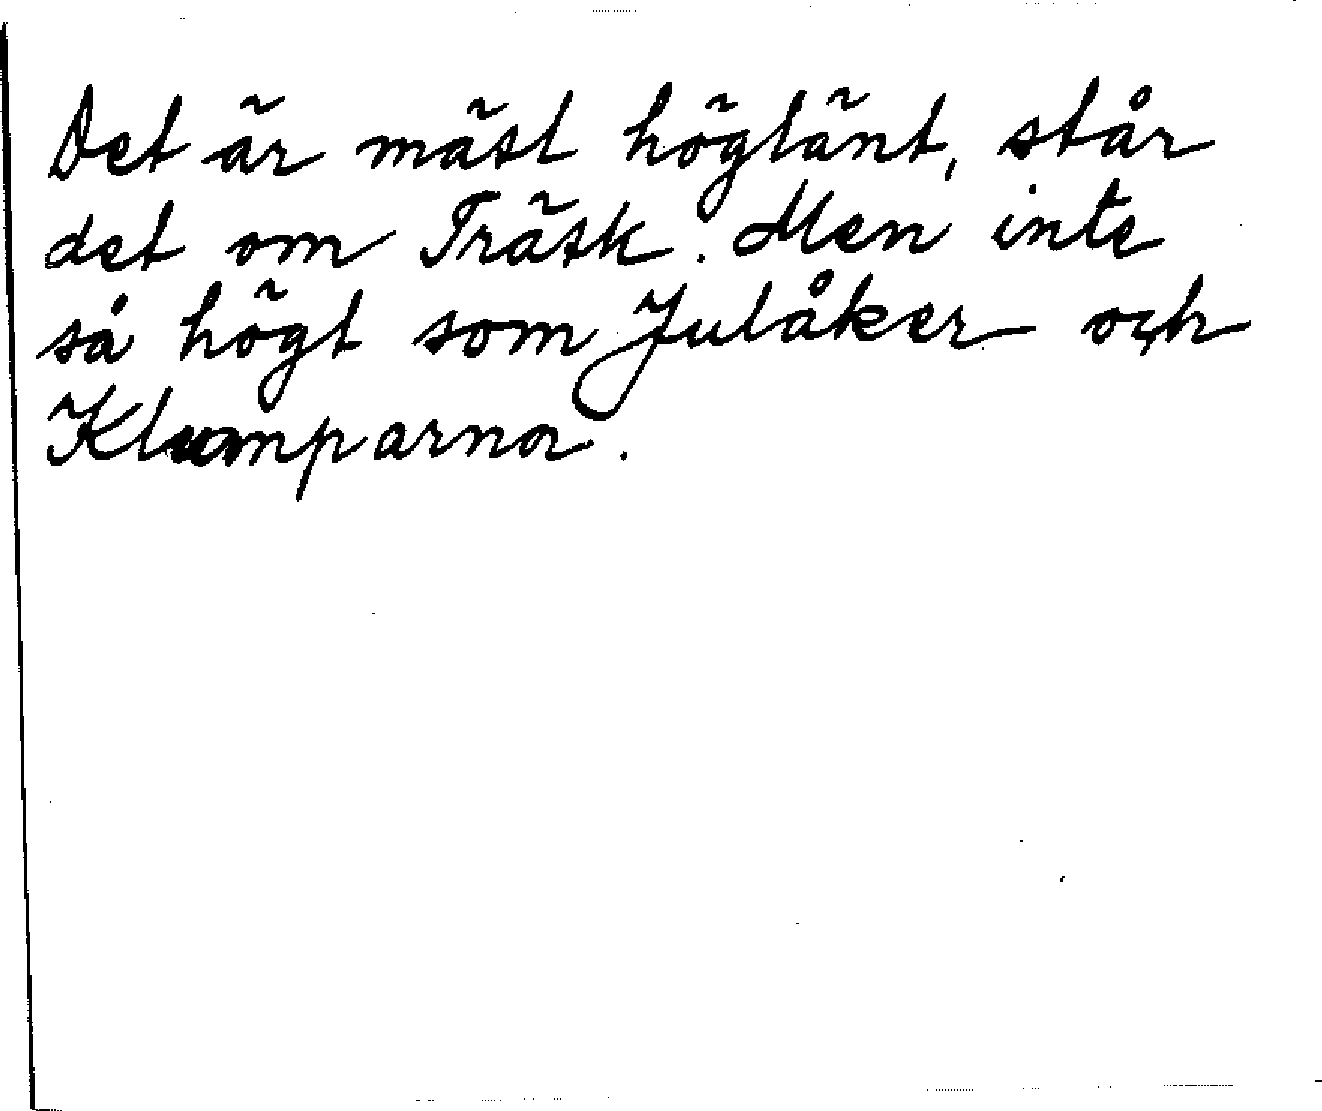 Det är mäst höglänt, står
det om Träsk. Men inte
så högt som Julåker och
Klumparna.